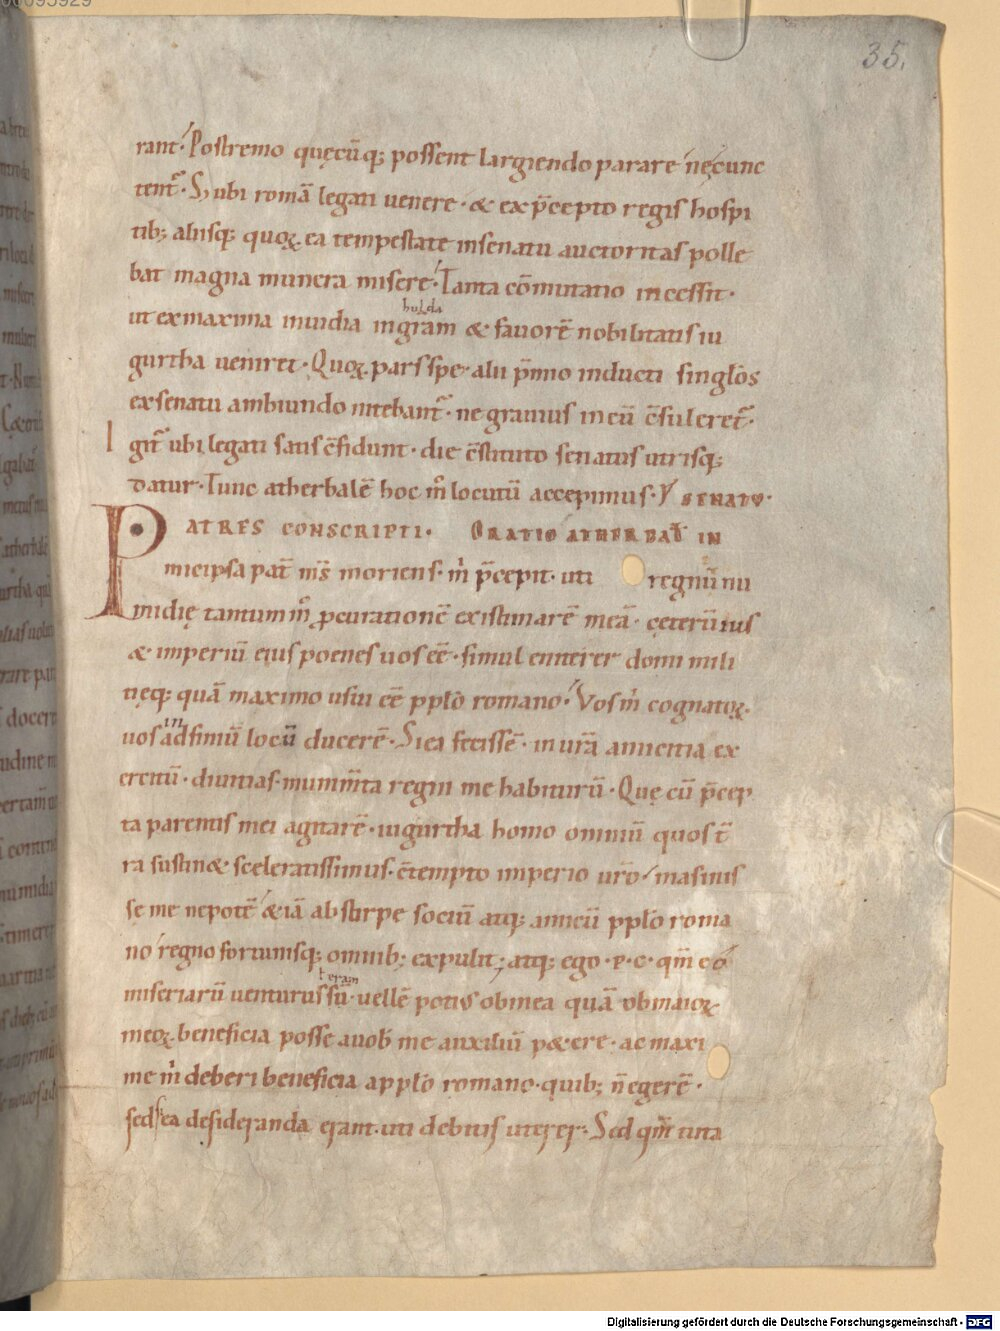 35.
rant. Postremo quęcūq; possent largiendo parare ne cunc
tent᷑. S; ubi romā legati venere. & ex p̄cepto regis hospi
tib; aliisq; quoꝝ ea tempestate insenatu auctoritas polle
bat magna munera misere. Tanta cōmutatio incessit.
hulda
ut ex maxima inuidia ingratiam & fauorē nobilitatis iu
gurtha veniret. Quoꝝ pars spe. alii p̄mio inducti singlōs
ex senatu ambiundo nitebant᷑. ne grauius in eū c̄suleret᷑.
Igit᷑ ubi legati satis c̄fidunt. die c̄stituto senatus utrisq;
datur. Tunc atherbalē hoc m̄ locutū accepimus. SENATV.
PATRES CONSCRIPTI. ORATIO ATHERBAL̄ IN
micipsa pat᷑ m̄s moriens. m̄ p̄cepit. uti regnū nu
midię tantum m̄ ꝓcurationē existimarē meā. ceterū ius
& imperiū eius poenes uos eē. simul enniterer domi mili
tięq; quā maximo usui eē ppl̄o romano. Vos m̄ cognatoꝝ.
in
uos adfiniū locū ducerē. Si ea fecissē. in ur̄a amicitia ex
ercitū. diuitias. munim̄ta regni me habiturū. Quę cū p̄cep
ta parentis mei agitarē. iugurtha homo omniū quos t̄
ra sustin& sceleratissimus. c̄tempto imperio ur̄o. masinis
se me nepotē & iā ab stirpe sociū atq; amicū ppl̄o roma
no regno fortunisq; omnib; expulit; atq; ego. P. C. qm̄ eo
ł eram
miseriarū venturus sū. vellē potius ob mea quā ob maioꝝ
meoꝝ beneficia posse a uob̄ me auxiliū petere. ac maxi
me m̄ deberi beneficia a ppl̄o romano. quib; n̄ egerē.
sed s ea desideranda erant. uti debitis uterer. Sed qm̄ tuta
Digitalisierung gefördert durch die Deutsche Forschungsgemeinschaft - DFG